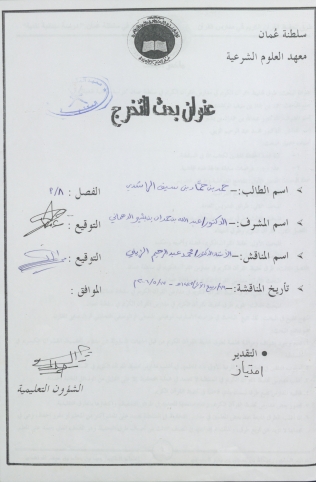 سلطنة عُمان
معهد العلوم الشرعية
عنوان بحث التخرج
> اسم الطالب :- حمد بن حمد بن سيف الراشدي الفصل : ٢/٨
> اسم المشرف :- الدكتور/ عبدالله بن التوقيع :
> اسم المناقش :- الأستاذ الدكتور/ محمد عبدالرحيم الزيني التوقيع :
> تأريخ المناقشة :- الموافق :
• التقدير
امتياز
الشؤون التعليمية